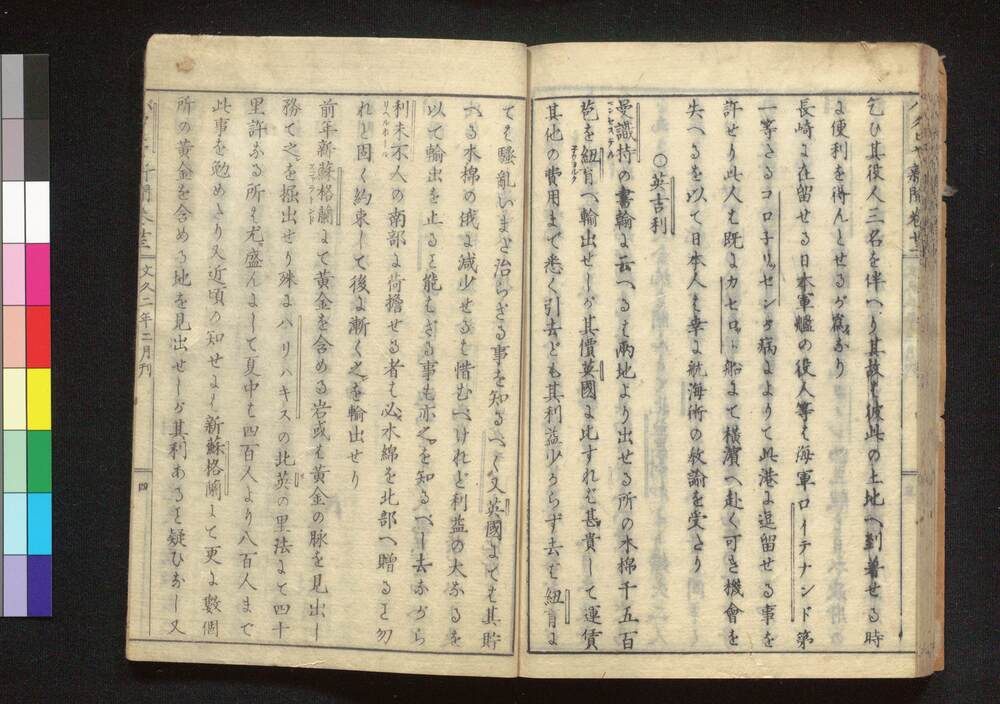 バタビヤ新聞巻廿二
乞ひ其役人三名を伴へり其故は彼此の土地へ到着せる時
に便利を得んとせるが為なり
長崎に在留せる日本軍艦の役人等は海軍ロイテナンド第
一等たるコロ子リセンタ病によりて此港に逗留せる事を
許せり此人は既にカセロット船にて横濱へ赴く可き機會を
失へるを以て日本人は幸に航海術の教諭を受たり
○英吉利
曼識特の書翰に云へるは兩地より出せる所の水棉千五百
マンセステル
苞を紐育へ輸出せしが其價英國に比すれば甚貴して運賃
子ウヨルク
其他の費用まで悉く引去ども其利益少からず去ば紐育に
ても騒亂いまだ治らざる事を知るべく又英國にても其貯
へる水棉の俄に減少せるは惜むべけれど利益の大なるを
以て輸出を止ると能はざる事も亦之を知るべし去ながら
利未不人の南部に荷擔せる者も必水綿を北部へ贈ると勿
リベルポール
れと固く約束して後に漸く之を輸出せり
前年新蘇格蘭にて黄金を含める岩或は黄金の脉を見出し
務て之を掘出せり殊にハリハキスの北英の里法にて四十
里許なる所は尤盛んにして夏中は四百人より八百人まで
此事を勉めたり又近頃の知せには新蘇格蘭にて更に數個
所の黄金を含める地を見出せしが其利あると疑ひなし又
文久二年二月刊
四